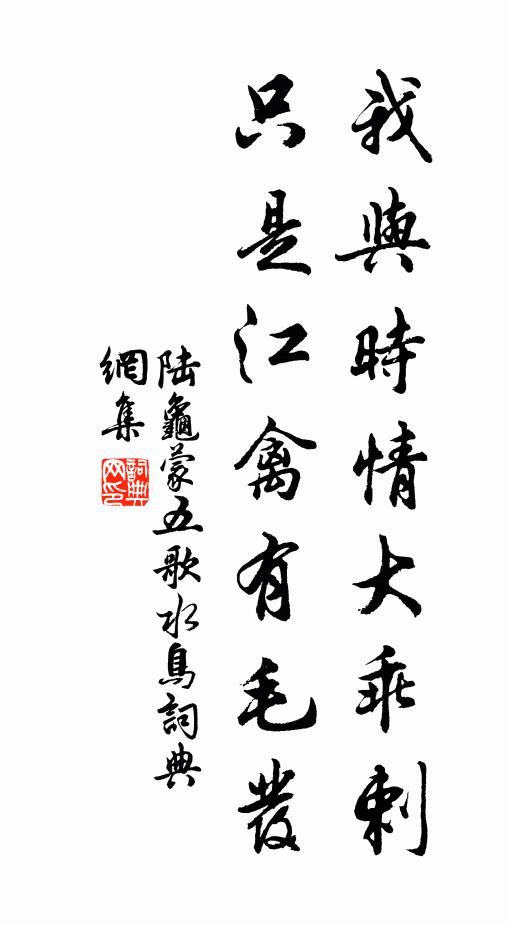 我與時情大乖刺
只是江禽有毛發
陸龜蒙五歌水鳥詞典
網集
詞典網印